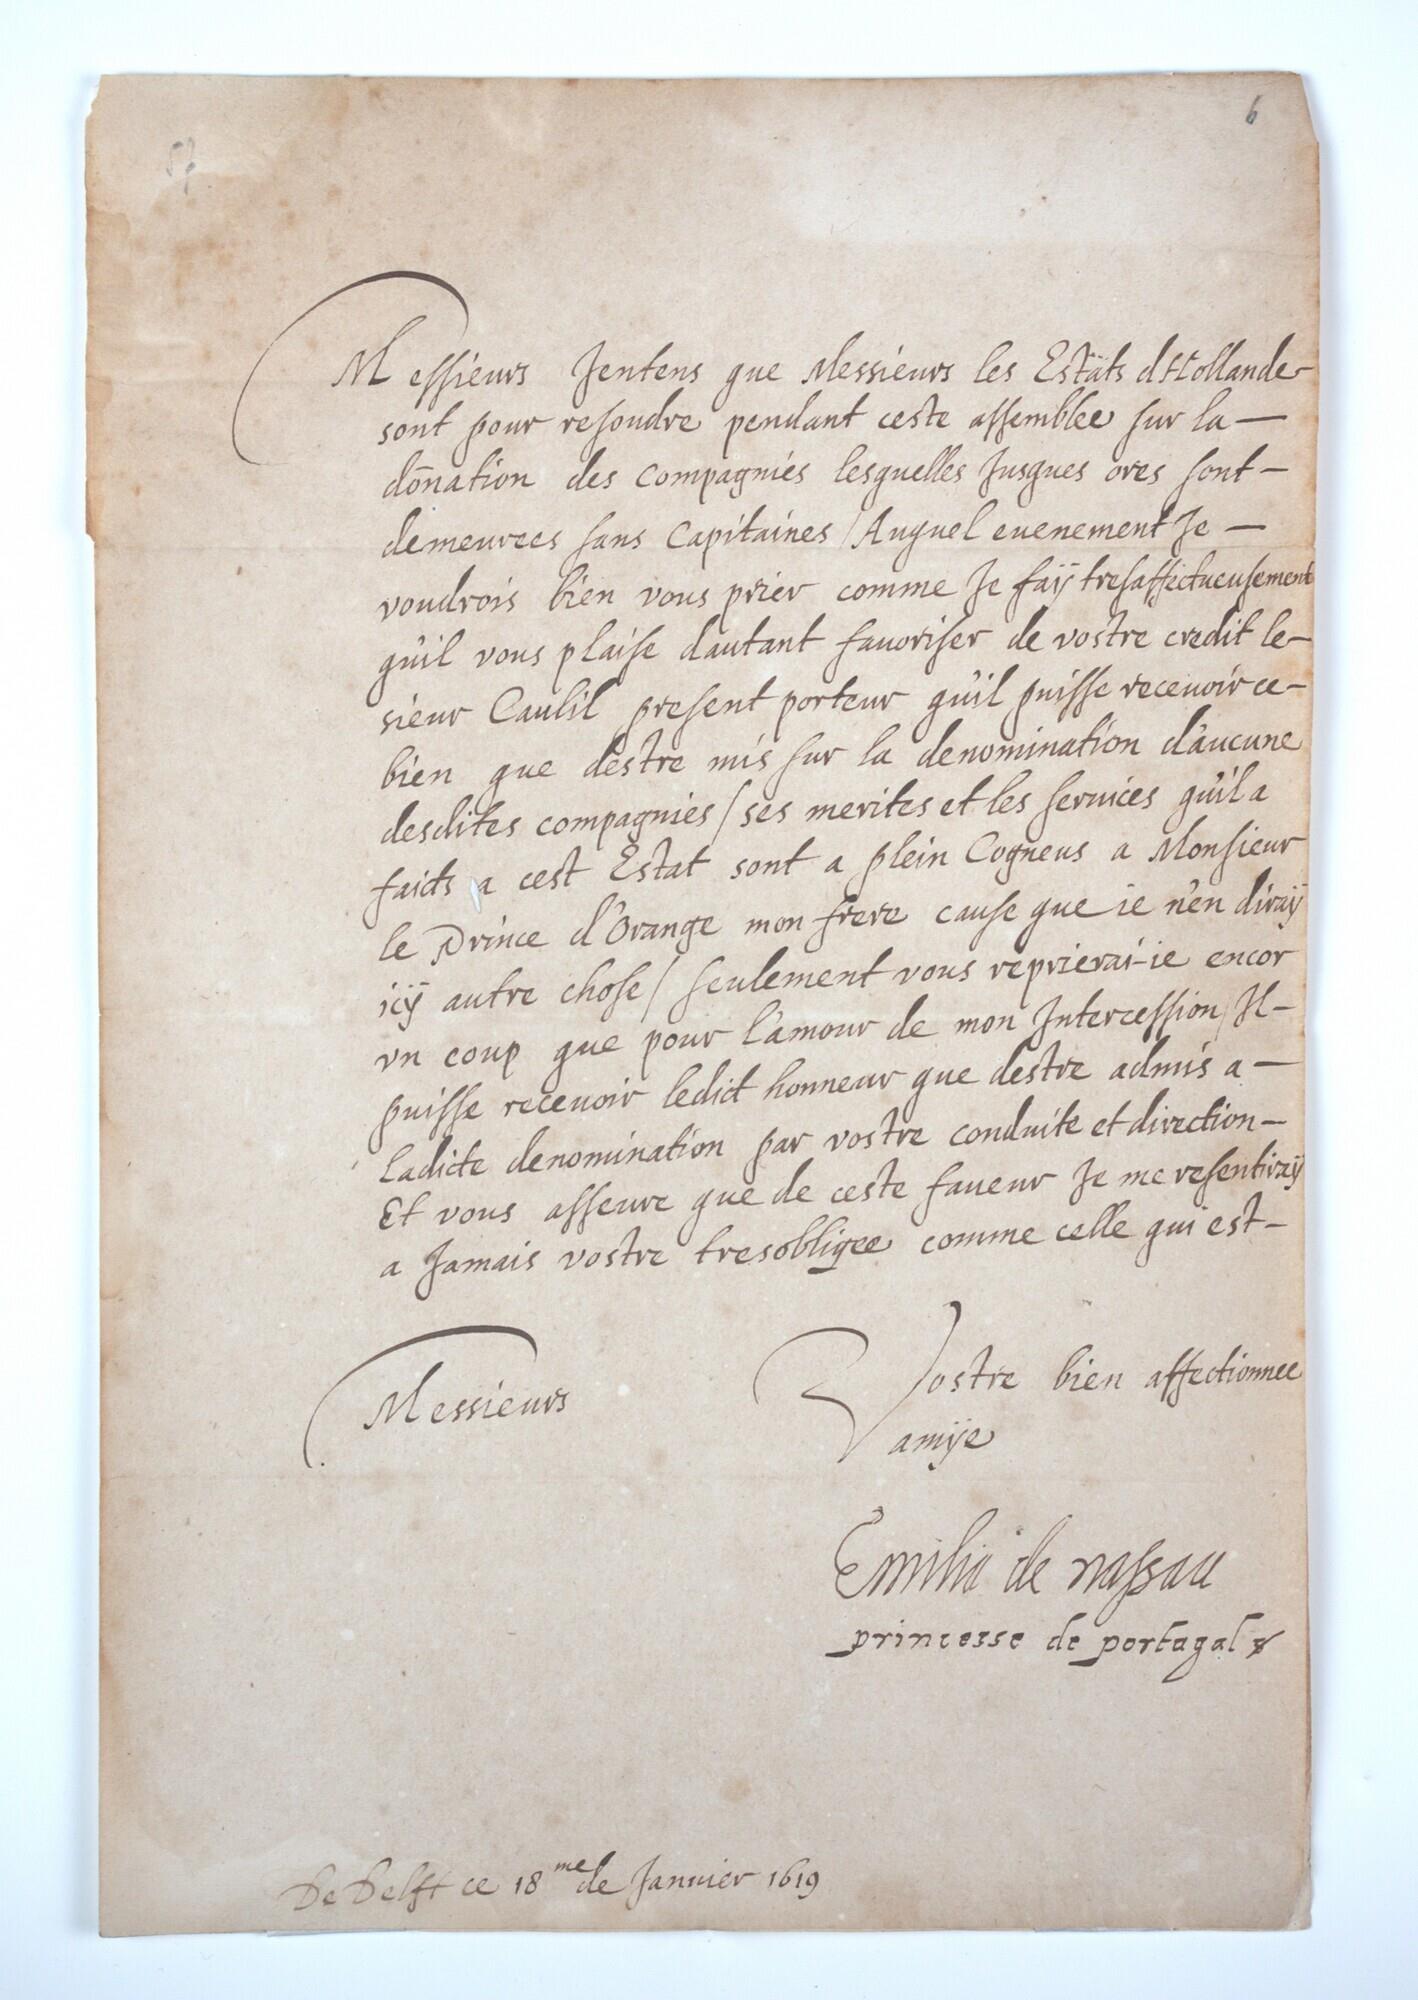 6
Messieurs Jentens que Messieurs les Estäts d'Hollande
sont pour resoudre pendant ceste assemblee sur la —
dōnation des Compagnies lesquelles Jusques ores sont —
demeurees sans Capitaines / Auquel euenement Je —
voudrois bien vous prier comme Je faÿ tresaffectueusement
qu'il vous plaise dautant fauoriser de vostre credit le —
sieur Caulil present porteur qu'il puisse recevoir ce —
bien que destre mis sur la denomination d'aucune
desdites compagnies / ses merites et les seruices qu'il a
faicts a cest Estat sont a plein Cogneus a Monsieur
le Prince d'Orange mon frere cause que ie n'en diraÿ
icÿ autre chose / seulement vous reprierai-ie encor
vn coup que pour l'amour de mon Intercession / Il —
puisse recevoir ledict honneur que destre admis a —
ladicte denomination par vostre conduite et direction —
Et vous asseure que de ceste faueur Je me resentiraÿ
a Jamais vostre tresobligee comme celle qui est —
Messieurs
Vostre bien affectionnee
amÿe
Emilia de nassau
princesse de portugal
De Delft ce 18me de Januier 1619